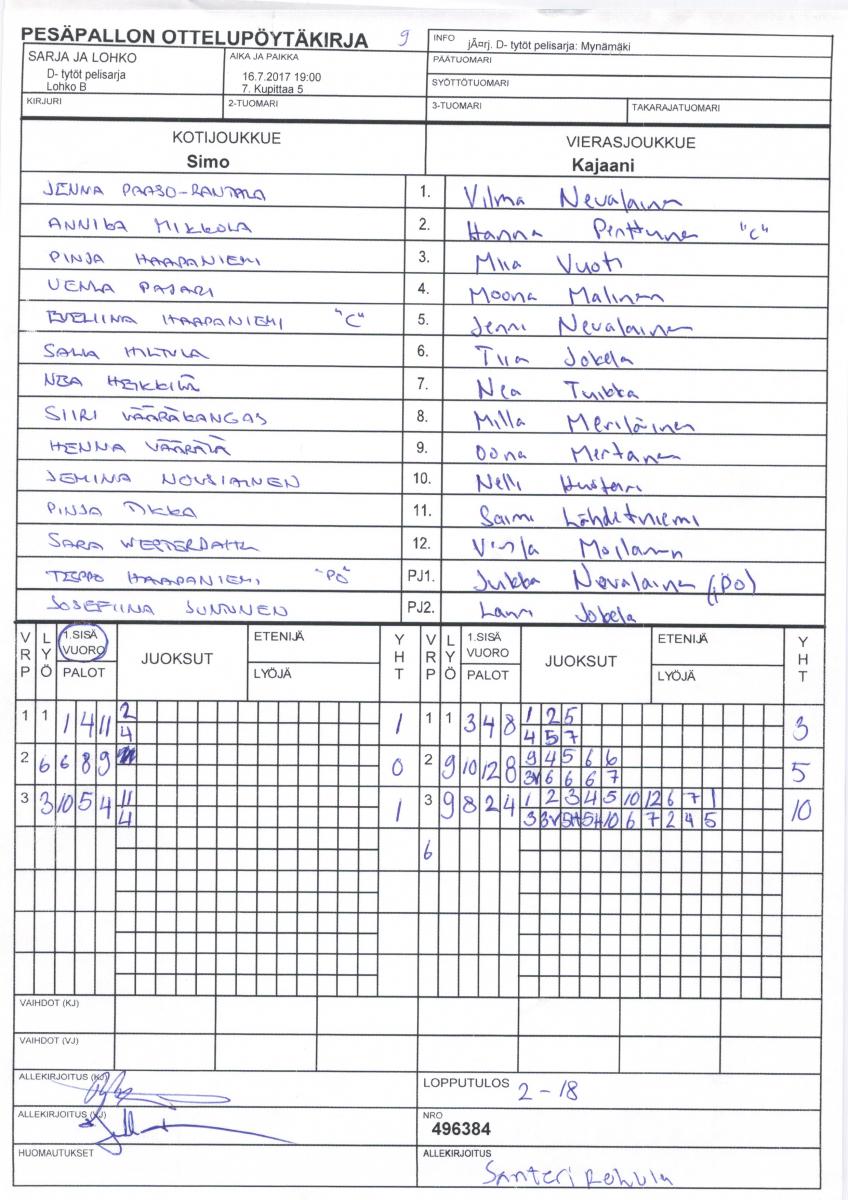 PESÄPALLON OTTELUPÖYTÄKIRJA 9
INFO jÃ¤rj. D- tytöt pelisarja: Mynämäki
SARJA JA LOHKO
D- tytöt pelisarja
Lohko B
AIKA JA PAIKKA
16.7.2017 19:00
7. Kupittaa 5
PÄÄTUOMARI
SYÖTTÖTUOMARI
KIRJURI 2-TUOMARI 3-TUOMARI TAKARAJATUOMARI
KOTIJOUKKUE VIERASJOUKKUE
Simo Kajaani
JENNA PAASO-RANTALA 1. Vilma Nevalainen
ANNIKA MIKKOLA 2. Hanna Penttunen "C"
PINJA HAAPANIEMI 3. Miia Vuoti
VENLA PAJARI 4. Moona Malinen
EVELIINA HAAPANIEMI "C" 5. Jenni Nevalainen
SALLA HILTULA 6. Tiia Jokela
NEA HEIKKILÄ 7. Nea Tuikka
SIIRI VÄÄRÄKANGAS 8. Milla Meriläinen
HENNA VÄÄRÄLÄ 9. Oona Mertanen
JEMINA NOUSIAINEN 10. Nelli
PINJA TIKKA 11. Saimi Lähdetniemi
SARA WESTERDAHL 12. Moilanen
HAAPANIEMI "PÖ" PJ1. Jukka Nevalainen (PÖ)
JOSEFIINA JUNTUNEN PJ2. Lauri Jokela
VRP LYÖ 1.SISÄ VUORO PALOT JUOKSUT ETENIJÄ LYÖJÄ YHT VRP LYÖ 1.SISÄ VUORO PALOT JUOKSUT ETENIJÄ LYÖJÄ YHT
1 1 1 4 11 2 1 1 1 3 4 8 1 2 5 3
4 4 5 7
2 6 6 8 9 0 2 9 10 12 8 9 4 5 6 6 5
3V 6 6 6 7
3 3 10 5 4 11 1 3 9 8 2 4 1 2 3 4 5 10 12 6 7 1 10
4 3 3V 10 6 7 2 4 5
6
VAIHDOT (KJ)
VAIHDOT (VJ)
ALLEKIRJOITUS (KJ)
LOPPUTULOS 2 - 18
ALLEKIRJOITUS (VJ)
NRO
496384
HUOMAUTUKSET
ALLEKIRJOITUS
Santeri